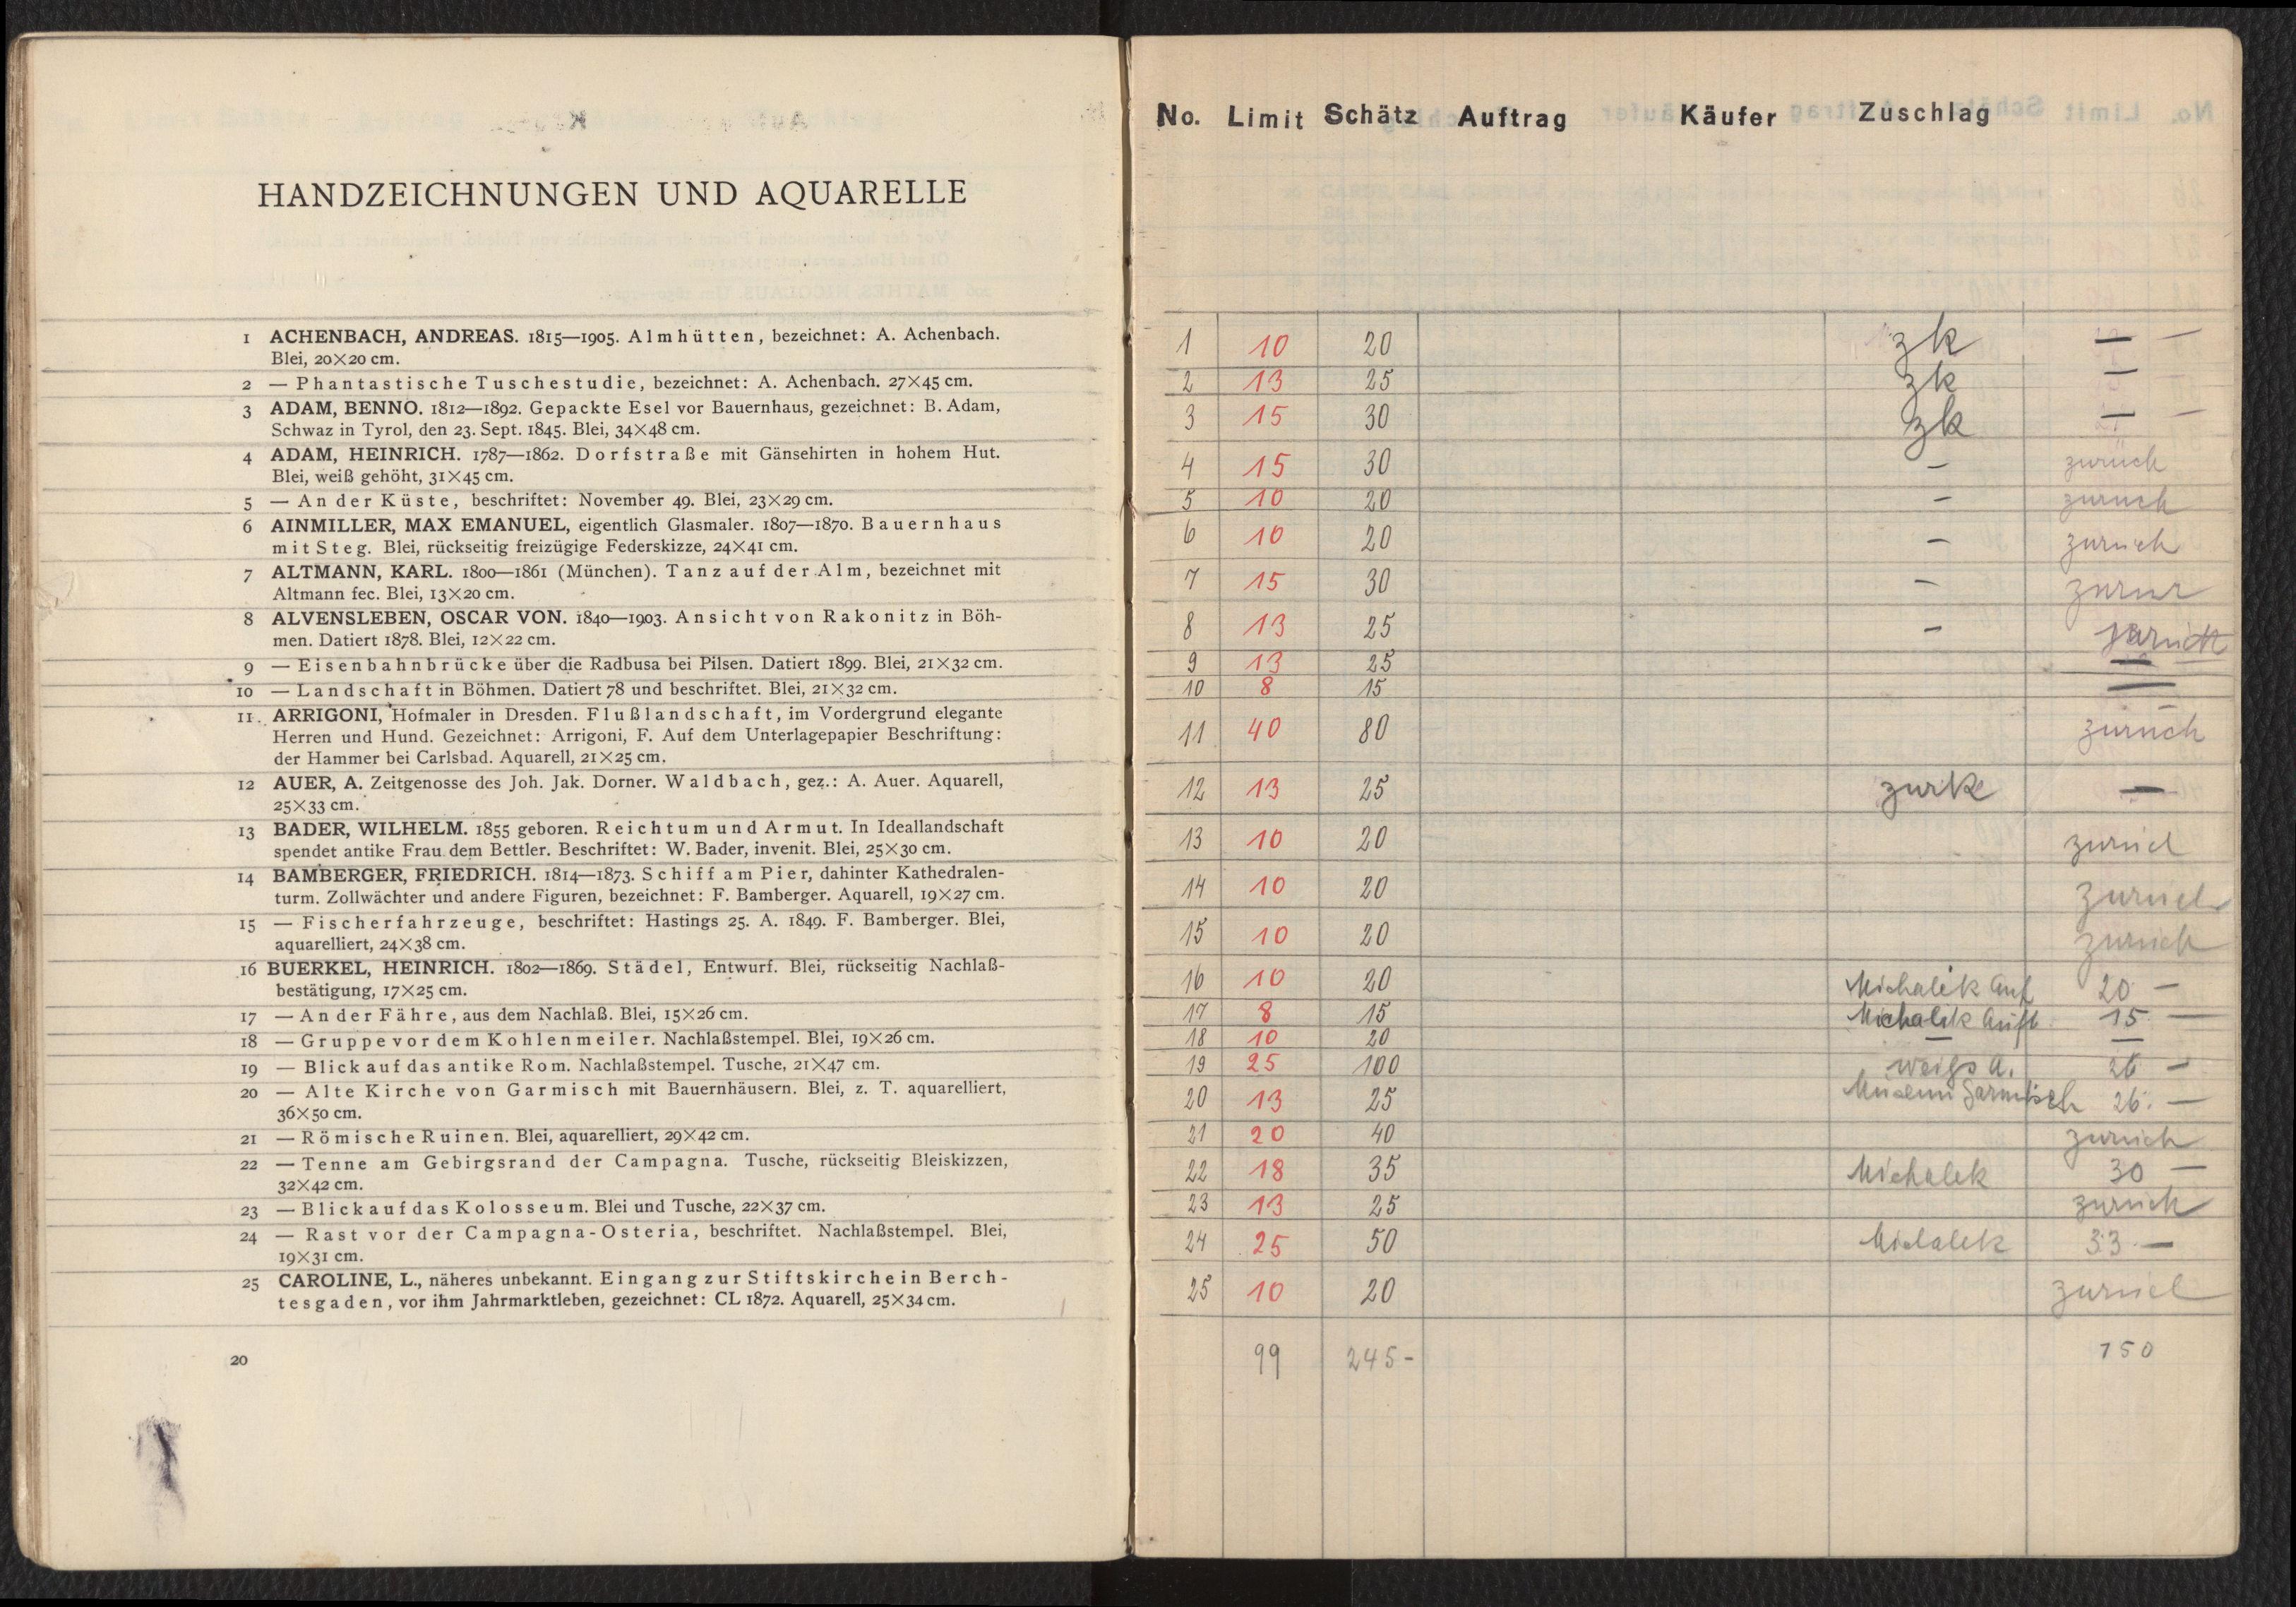 HANDZEICHNUNGEN UND AQUARELLE
1 ACHENBACH, ANDREAS. 1815—1905. Almhütten, bezeichnet: A. Achenbach.
Blei, 20×20 cm.
2 — Phantastische Tuschestudie, bezeichnet: A. Achenbach. 27×45 cm.
3 ADAM, BENNO. 1812—1892. Gepackte Esel vor Bauernhaus, gezeichnet: B. Adam,
Schwaz in Tyrol, den 23. Sept. 1845. Blei, 34×48 cm.
4 ADAM, HEINRICH. 1787—1862. Dorfstraße mit Gänsehirten in hohem Hut.
Blei, weiß gehöht, 31×45 cm.
5 — An der Küste, beschriftet: November 49. Blei, 23×29 cm.
6 AINMILLER, MAX EMANUEL, eigentlich Glasmaler. 1807—1870. Bauernhaus
mit Steg. Blei, rückseitig freizügige Federskizze, 24×41 cm.
7 ALTMANN, KARL. 1800—1861 (München). Tanz auf der Alm, bezeichnet mit
Altmann fec. Blei, 13×20 cm.
8 ALVENSLEBEN, OSCAR VON. 1840—1903. Ansicht von Rakonitz in Böh-
men. Datiert 1878. Blei, 12×22 cm.
9 — Eisenbahnbrücke über die Radbusa bei Pilsen. Datiert 1899. Blei, 21×32 cm.
10 — Landschaft in Böhmen. Datiert 78 und beschriftet. Blei, 21×32 cm.
11 ARRIGONI, Hofmaler in Dresden. Flußlandschaft, im Vordergrund elegante
Herren und Hund. Gezeichnet: Arrigoni, F. Auf dem Unterlagepapier Beschriftung:
der Hammer bei Carlsbad. Aquarell, 21×25 cm.
12 AUER, A. Zeitgenosse des Joh. Jak. Dorner. Waldbach, gez.: A. Auer. Aquarell,
25×33 cm.
13 BADER, WILHELM. 1855 geboren. Reichtum und Armut. In Ideallandschaft
spendet antike Frau dem Bettler. Beschriftet: W. Bader, invenit. Blei, 25×30 cm.
14 BAMBERGER, FRIEDRICH. 1814—1873. Schiff am Pier, dahinter Kathedralen-
turm. Zollwächter und andere Figuren, bezeichnet: F. Bamberger. Aquarell, 19×27 cm.
15 — Fischerfahrzeuge, beschriftet: Hastings 25. A. 1849. F. Bamberger. Blei,
aquarelliert, 24×38 cm.
16 BUERKEL, HEINRICH. 1802—1869. Städel, Entwurf. Blei, rückseitig Nachlaß-
bestätigung, 17×25 cm.
17 — An der Fähre, aus dem Nachlaß. Blei, 15×26 cm.
18 — Gruppe vor dem Kohlenmeiler. Nachlaßstempel. Blei, 19×26 cm.
19 — Blick auf das antike Rom. Nachlaßstempel. Tusche, 21×47 cm.
20 — Alte Kirche von Garmisch mit Bauernhäusern. Blei, z. T. aquarelliert,
36×50 cm.
21 — Römische Ruinen. Blei, aquarelliert, 29×42 cm.
22 — Tenne am Gebirgsrand der Campagna. Tusche, rückseitig Bleiskizzen,
32×42 cm.
23 — Blick auf das Kolosseum. Blei und Tusche, 22×37 cm.
24 — Rast vor der Campagna-Osteria, beschriftet. Nachlaßstempel. Blei,
19×31 cm.
25 CAROLINE, L., näheres unbekannt. Eingang zur Stiftskirche in Berch-
tesgaden, vor ihm Jahrmarktleben, gezeichnet: CL 1872. Aquarell, 25×34 cm.
20
No. Limit Schätz Auftrag Käufer Zuschlag
1 10 20 zk — —
2 13 25 zk —
3 15 30 zk — —
4 15 30 — zurück
5 10 20 — zurück
6 10 20 — zurück
7 15 30 — zurur
8 13 25 — zurück
9 13 25 —
10 8 15 —
11 40 80 — zurück
12 13 25 zurk —
13 10 20 zurück
14 10 20 zurück
15 10 20 zurück
16 10 20 Michalek Auf 20 —
17 8 15 Michalek Auft. 15 —
18 10 20 — —
19 25 100 Weigs A. 26 —
20 13 25 Museum Garmisch 26. —
21 20 40 zurück
22 18 35 Michalek 30 —
23 13 25 zurück
24 25 50 Michalek 33 —
25 10 20 zurück
99 245- 150